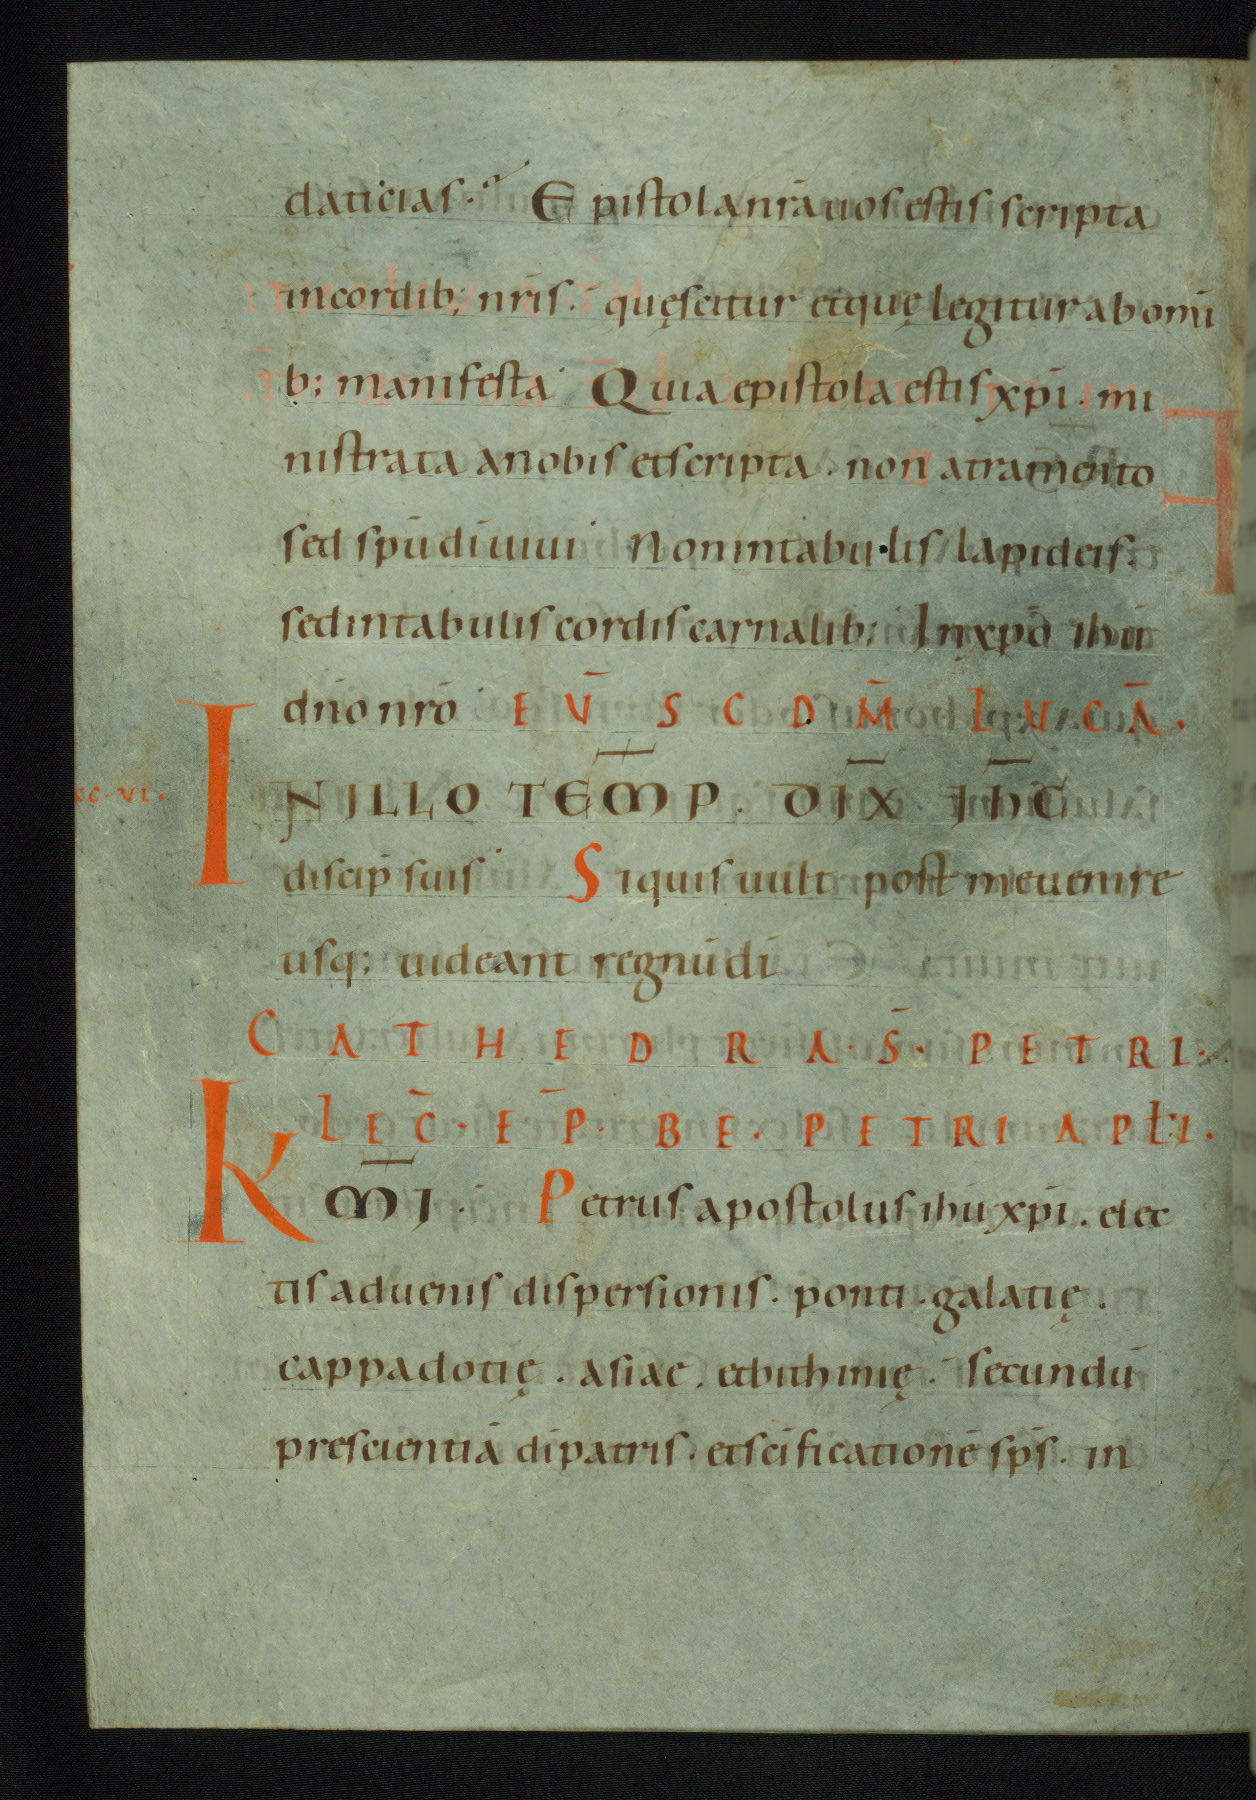 daticias. Epistola nr̄a uos estis scripta
in cordib; nr̄is. quę scitur et quę legitur ab omī
b; manifesta Quia epistola estis xp̄i. mi
nistrata a nobis et scripta. non atramento
sed sp̄u dī uiui Non in tabulis lapideis.
sed in tabulis cordis carnalib; In xp̄o ih̄u
dn̄o nr̄o EV̄ SCDM̄ LUCĀ.
CC·VI.
IN ILLO TEM̄P. DIX̄ IH̄C
discip̄ suis Siquis uult post me uenire
usq; uideant regnū dī
CATHEDRA·S̄·PETRI.
LEC̄·EP̄·BE·PETRI APŁI.
KM̄I. Petrus apostolus ih̄u xp̄i. elec
tis aduenis dispersionis. ponti. galatię.
cappadotię. asiae. et bithinię. secundū
prescientiā dī patris. et sc̄ificationē sp̄s. in